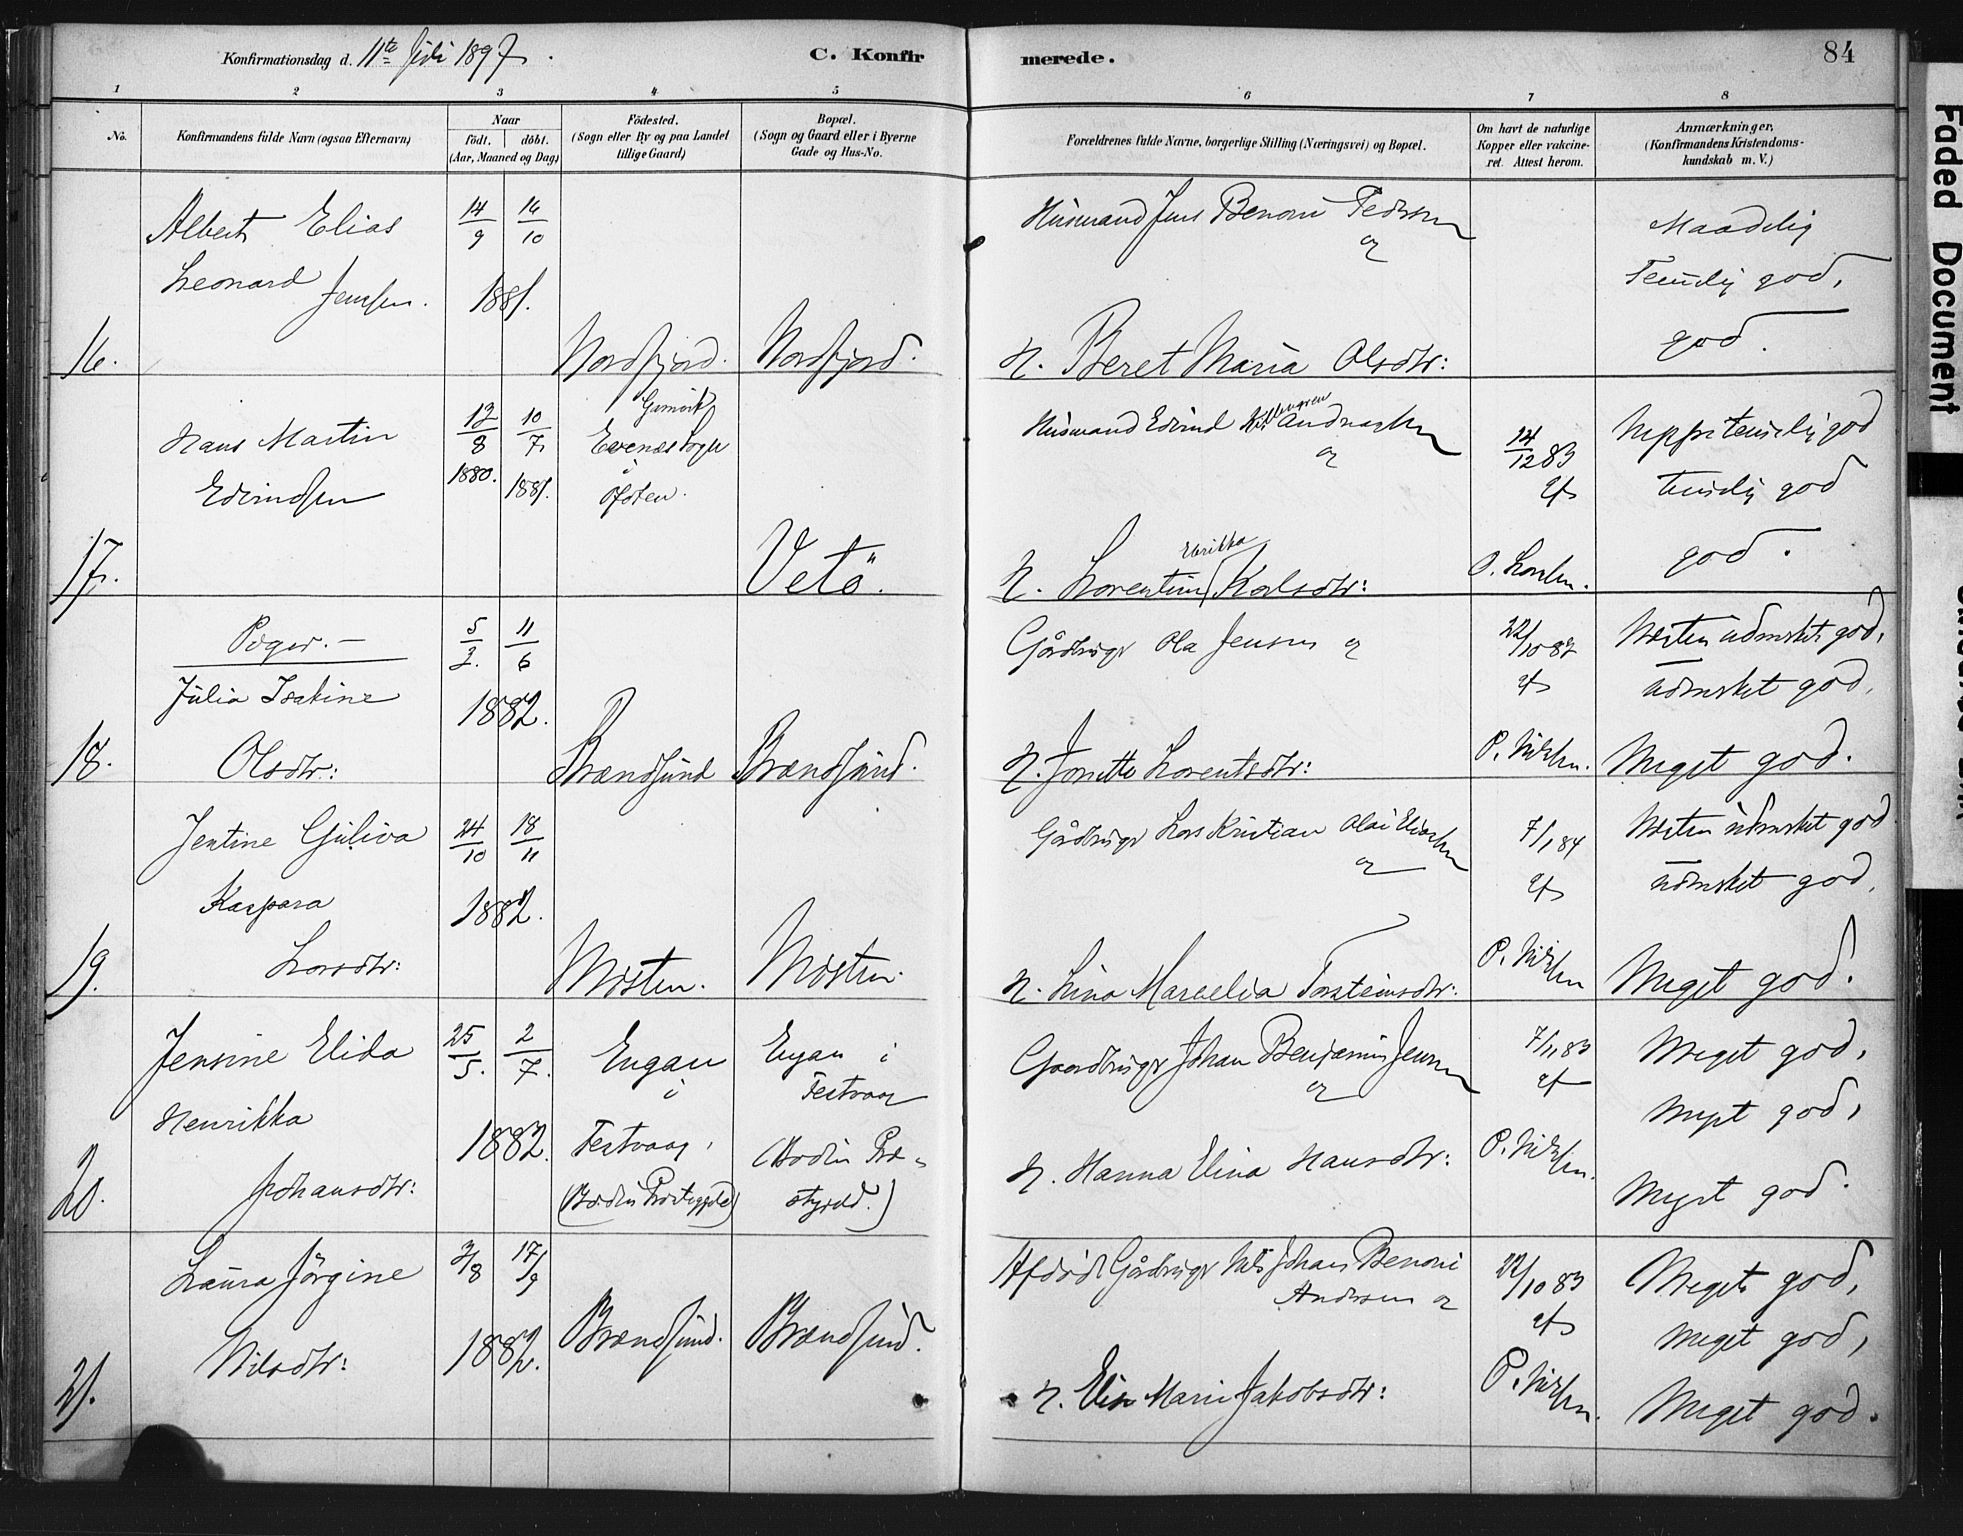 Konfirmationsdag d. 11te Juli 1897.
C. Konfirmerede.
84
1 2 3 4 5 6 7 8
No.
Konfirmandens fulde Navn (ogsaa Efternavn)
Naar
födt. döbt.
(Aar, Maaned og Dag)
Födested.
(Sogn eller By og paa Landet
tillige Gaard)
Bopæl.
(Sogn og Gaard eller i Byerne
Gade og Hus-No.
Forældrenes fulde Navne, borgerlige Stilling (Næringsvei) og Bopæl.
Om havt de naturlige
Kopper eller vakcine-
ret. Attest herom.
Anmærkninger,
(Konfirmandens Kristendoms-
kundskab m. V.)
16.
Albert Elias
Leonard
Jensen.
14/9 16/10
1881.
Nordfjord.
Nordfjord.
Husmand Jens Benoni Pedersen
og
H. Beret Maria Olsdtr:
Maadelig
Temelig god,
god.
17.
Hans Martin
Edvindsen
12/8 10/7
1880. 1881.
Evenæs Sogn
i
Ofoten.
Vetö.
Husmand Edvind Andreassen
og
Ulrikka
H. Lorentine Karlsdtr:
14/12 83
af
god
temelig god
god.
18.
Piger.-
Julia Isakine
Olsdtr:
5/2. 11/6
1882.
Brændsund
Brændsund.
Gårdbruger Ola Jensen og
H. Jonette Lorentsdtr:
22/10 83
af
Næsten udmerket god,
udmerket god,
Meget god.
19.
Jentine Guliva
Kaspara
Larsdtr:
24/10 18/11
1882.
Mosten.
Mosten.
Gårdbruger Lars Kristian Olai Eliassen
og
H. Lina Marselia Torsteinsdtr:
7/1 84
af
Næsten udmerket god
udmerket god,
Meget god.
20.
Jensine Elida
Henrikka
Johansdtr:
25/5. 2/7.
1882.
Engan
i
Festvaag,
(Bodin Præstegjeld)
Engan i
Festvaag
(Bodin Præ-
stegjeld.)
Gaardbruger Johan Benjamin Jensen
og
H. Hanna Elina Hansdtr:
7/11 83
af
Meget god,
meget god,
Meget god.
21.
Laura Jörgine
Nilsdtr:
3/8 17/9
1882.
Brændsund.
Brændsund.
Afdöde Gårdbruger Nils Johan Benoni
Andersen og
H. Elise Marie Jakobsdtr:
22/10 83
af
Meget god,
meget god,
Meget god.
Faded Document